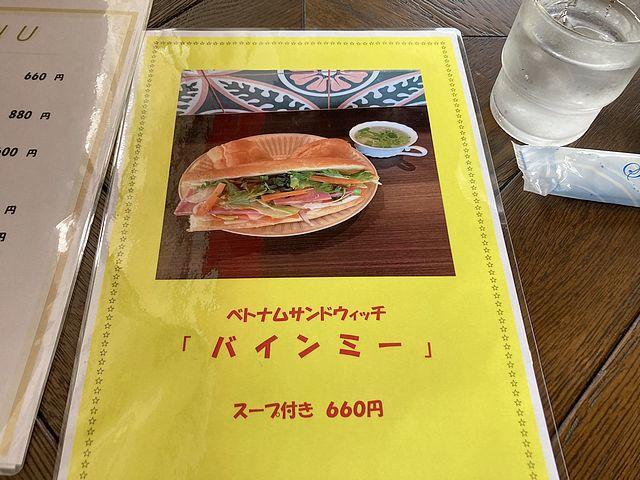 N U
660 円
880 円
600 円
円
円
ベトナムサンドウィッチ
「 バインミー 」
スープ付き 660円